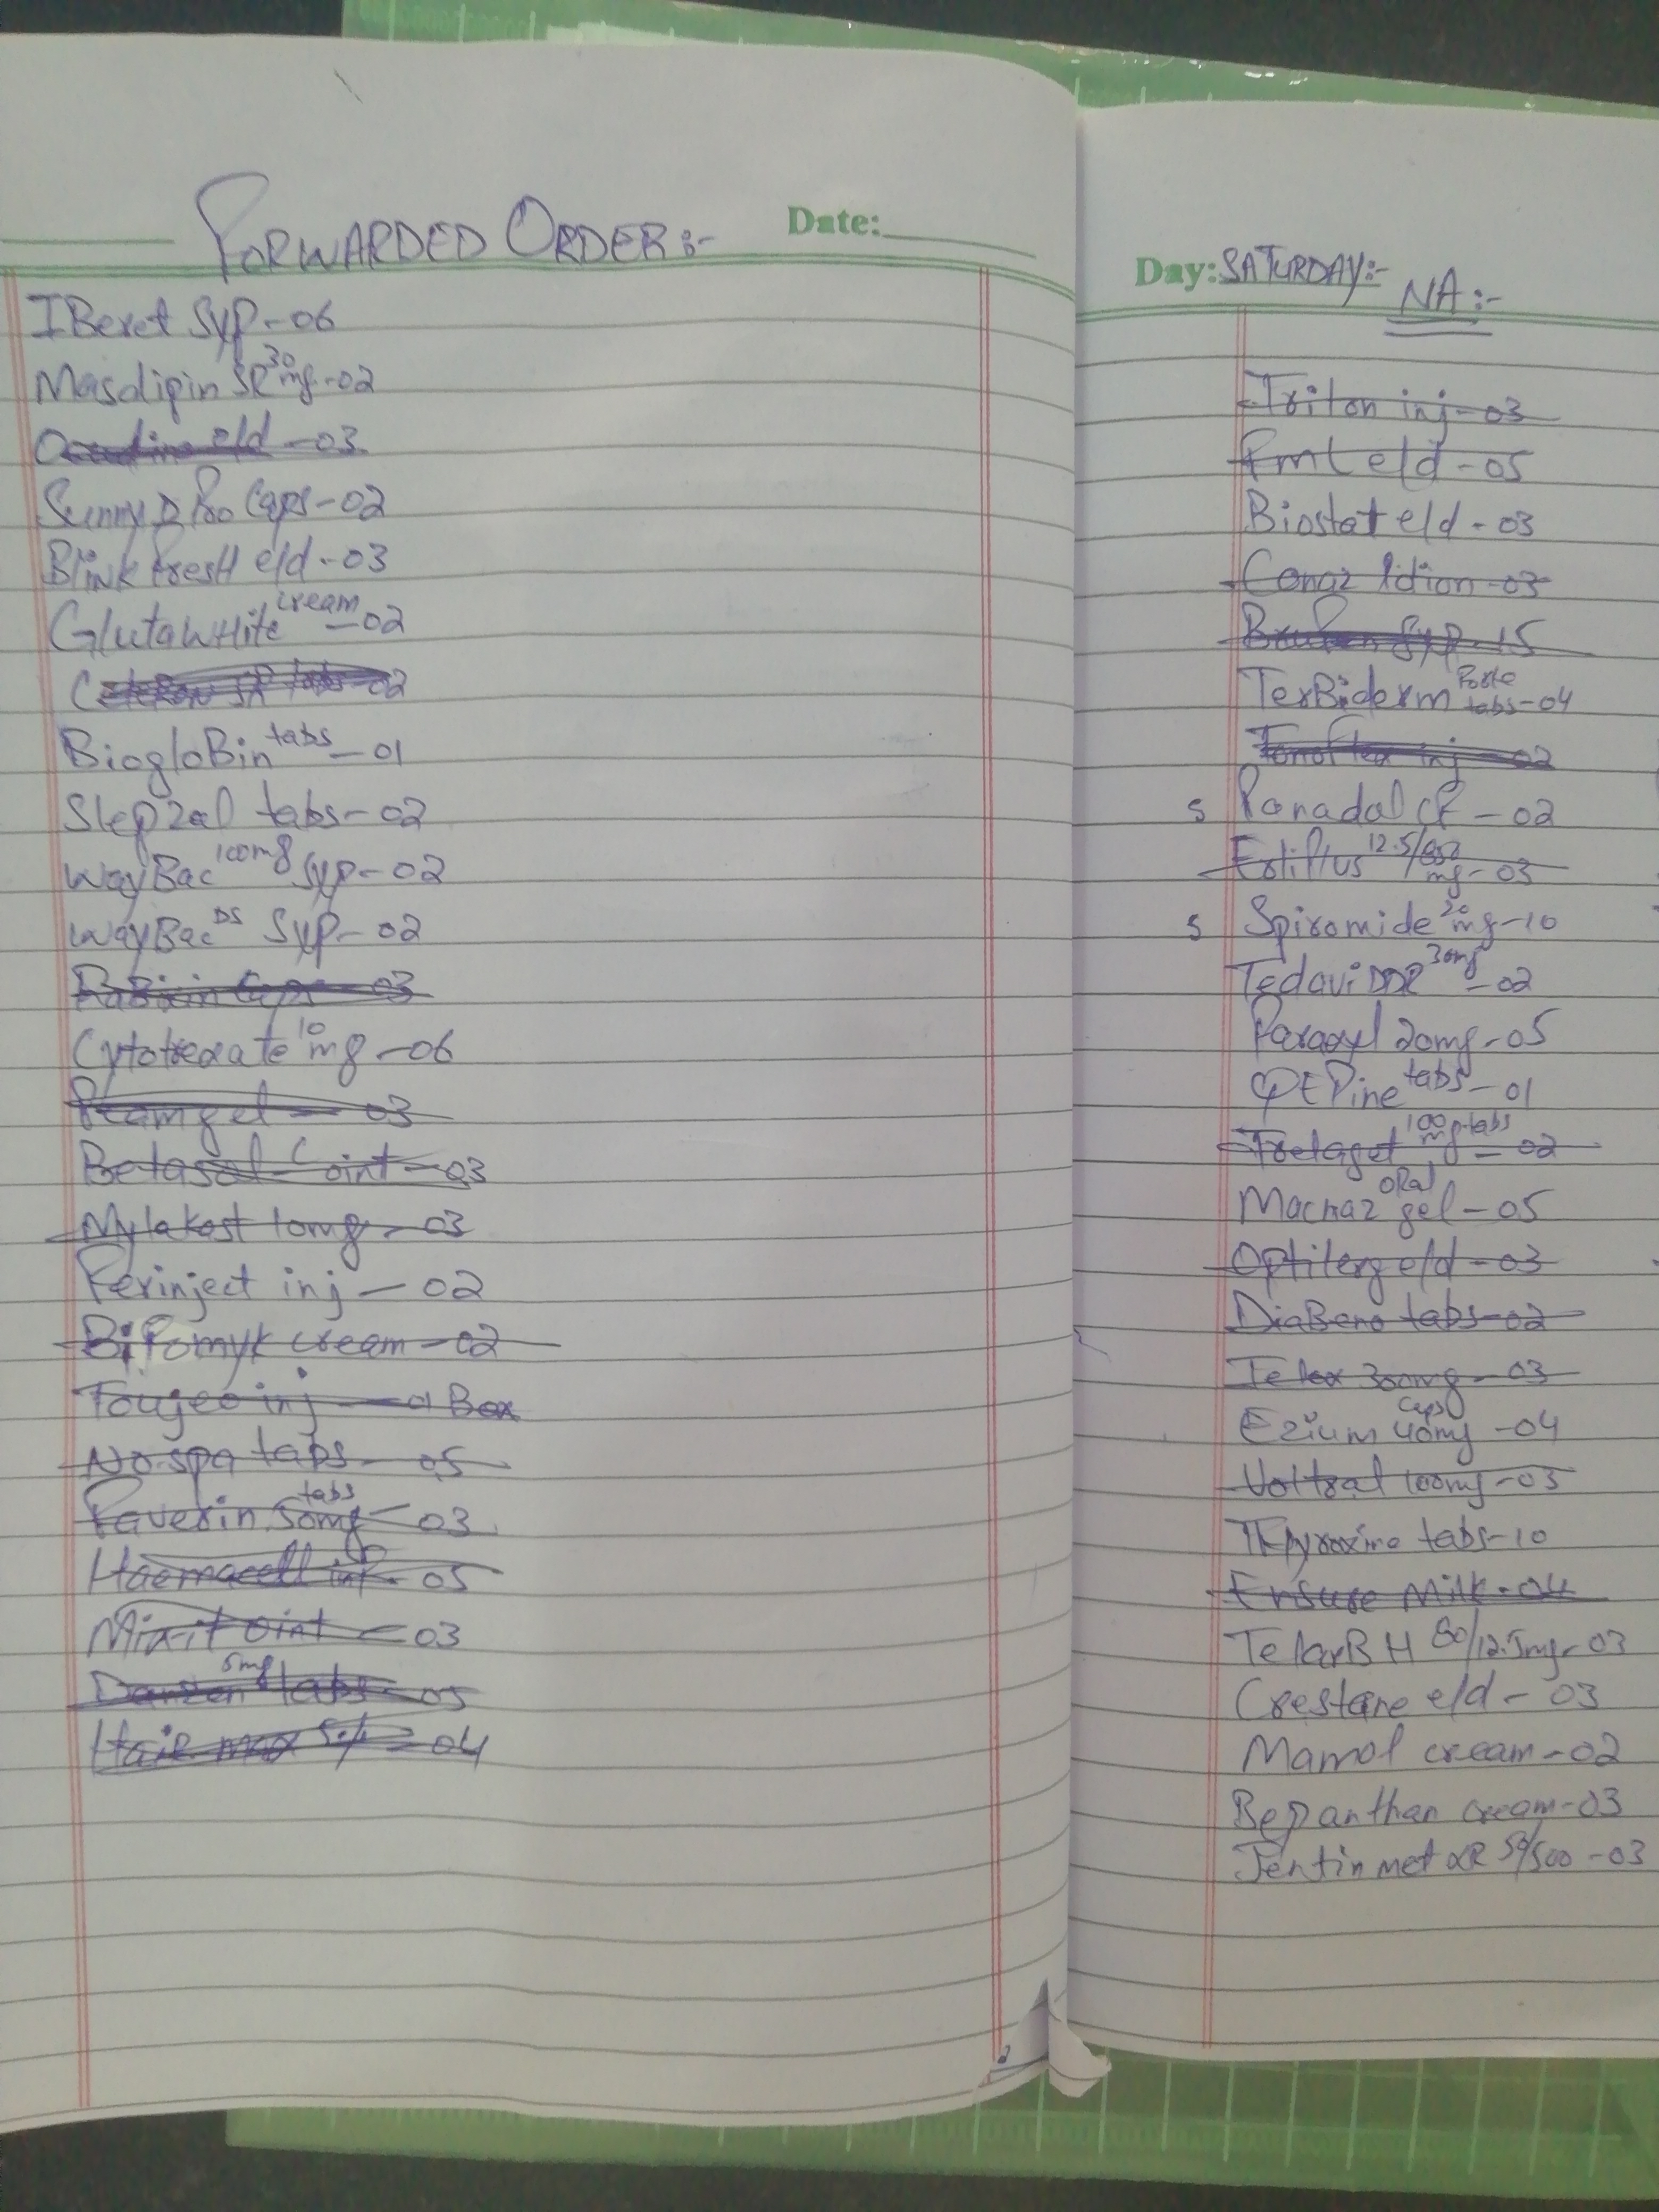 FORWARDED ORDER:-
Date:
IBeret Syp-06
Masdipin SR 30mg-02
e/d-03
Sunny D Pro Caps-02
Blink fresH e/d-03
GlutawHite cream-02
SR tabs-02
BiogloBin tabs-01
Slepzal tabs-02
WayBac 100mg Syp-02
WayBac DS Syp-02
Caps-03
Cytotrexate 10mg-06
gel-03
Betasol C oint-03
Mylakast 10mg-03
Ferinject inj-02
Bifomyk cream-02
Toujeo inj-01 Box
No-spa tabs-05
Faverin 50mg tabs-03
Haemacell inf-05
Mixit oint-03
Danzen 5mg tabs-05
Hair max-04
Day:SATURDAY:-
NA:-
Triton inj-03
fml e/d-05
Biostat e/d-03
Conaz lotion-03
Brufen Syp-15
TerBiderm Forte tabs-04
Tonoflex inj-02
s Panadal CF-02
12.5/ mg-03
s Spiromide 20mg-10
TedaviDDR 30mg-02
Paraxyl 20mg-05
QTPine tabs-01
100mg tabs-02
Macnaz oRal gel-05
e/d-03
DiaBeno tabs-02
300mg-03
Ezium 40mg Caps-04
Voltral 100mg-03
THyroxine tabs-10
Ensure Milk-04
TelarB H 80/12.5mg-03
e/d-03
Mamol cream-02
Bepanthan cream-03
Jentin met XR 50/500-03